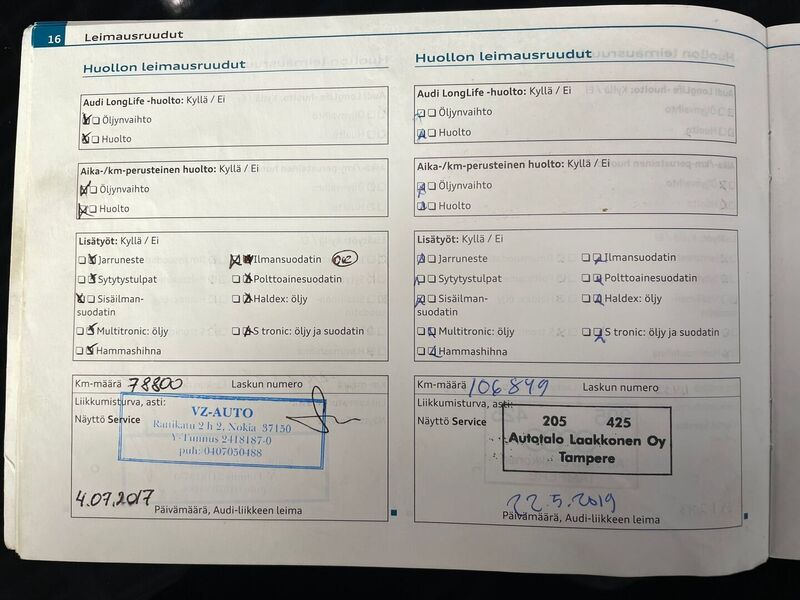 16 Leimausruudut
Huollon leimausruudut
Audi LongLife -huolto: Kyllä / Ei
Öljynvaihto
Huolto
Aika-/km-perusteinen huolto: Kyllä / Ei
Öljynvaihto
Huolto
Lisätyöt: Kyllä / Ei
Jarruneste
Ilmansuodatin
Sytytystulpat
Polttoainesuodatin
Sisäilman-
suodatin
Haldex: öljy
Multitronic: öljy
S tronic: öljy ja suodatin
Hammashihna
Km-määrä 78800 Laskun numero
Liikkumisturva, asti:
Näyttö Service
VZ-AUTO
Rautikatu 2 h 2, Nokia 37150
Y-Tunnus 2418187-0
puh: 0407050488
4.07.2017
Päivämäärä, Audi-liikkeen leima
Huollon leimausruudut
Audi LongLife -huolto: Kyllä / Ei
Öljynvaihto
Huolto
Aika-/km-perusteinen huolto: Kyllä / Ei
Öljynvaihto
Huolto
Lisätyöt: Kyllä / Ei
Jarruneste
Ilmansuodatin
Sytytystulpat
Polttoainesuodatin
Sisäilman-
suodatin
Haldex: öljy
Multitronic: öljy
S tronic: öljy ja suodatin
Hammashihna
Km-määrä 106849 Laskun numero
Liikkumisturva, asti:
Näyttö Service
205 425
Autotalo Laakkonen Oy
Tampere
22.5.2019
Päivämäärä, Audi-liikkeen leima